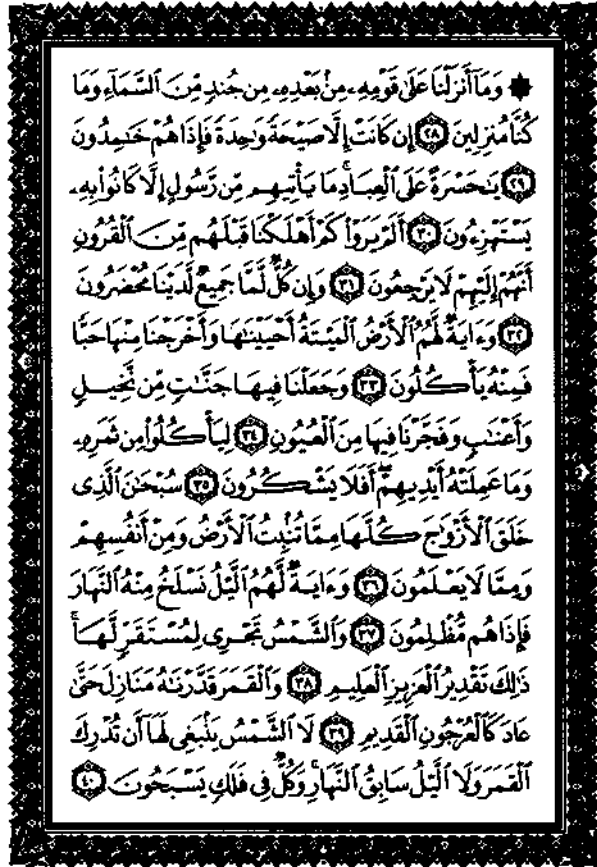 ۞ وَمَآ أَنزَلْنَا عَلَىٰ قَوْمِهِۦ مِنۢ بَعْدِهِۦ مِن جُندٍ مِّنَ ٱلسَّمَآءِ وَمَا
كُنَّا مُنزِلِينَ ٢٨ إِن كَانَتْ إِلَّا صَيْحَةً وَٰحِدَةً فَإِذَا هُمْ خَـٰمِدُونَ
٢٩ يَـٰحَسْرَةً عَلَى ٱلْعِبَادِ ۚ مَا يَأْتِيهِم مِّن رَّسُولٍ إِلَّا كَانُوا۟ بِهِۦ
يَسْتَهْزِءُونَ ٣٠ أَلَمْ يَرَوْا۟ كَمْ أَهْلَكْنَا قَبْلَهُم مِّنَ ٱلْقُرُونِ
أَنَّهُمْ إِلَيْهِمْ لَا يَرْجِعُونَ ٣١ وَإِن كُلٌّ لَّمَّا جَمِيعٌ لَّدَيْنَا مُحْضَرُونَ
٣٢ وَءَايَةٌ لَّهُمُ ٱلْأَرْضُ ٱلْمَيْتَةُ أَحْيَيْنَـٰهَا وَأَخْرَجْنَا مِنْهَا حَبًّا
فَمِنْهُ يَأْكُلُونَ ٣٣ وَجَعَلْنَا فِيهَا جَنَّـٰتٍ مِّن نَّخِيلٍ
وَأَعْنَـٰبٍ وَفَجَّرْنَا فِيهَا مِنَ ٱلْعُيُونِ ٣٤ لِيَأْكُلُوا۟ مِن ثَمَرِهِۦ
وَمَا عَمِلَتْهُ أَيْدِيهِمْ ۖ أَفَلَا يَشْكُرُونَ ٣٥ سُبْحَـٰنَ ٱلَّذِى
خَلَقَ ٱلْأَزْوَٰجَ كُلَّهَا مِمَّا تُنۢبِتُ ٱلْأَرْضُ وَمِنْ أَنفُسِهِمْ
وَمِمَّا لَا يَعْلَمُونَ ٣٦ وَءَايَةٌ لَّهُمُ ٱلَّيْلُ نَسْلَخُ مِنْهُ ٱلنَّهَارَ
فَإِذَا هُم مُّظْلِمُونَ ٣٧ وَٱلشَّمْسُ تَجْرِى لِمُسْتَقَرٍّ لَّهَا ۚ
ذَٰلِكَ تَقْدِيرُ ٱلْعَزِيزِ ٱلْعَلِيمِ ٣٨ وَٱلْقَمَرَ قَدَّرْنَـٰهُ مَنَازِلَ حَتَّىٰ
عَادَ كَٱلْعُرْجُونِ ٱلْقَدِيمِ ٣٩ لَا ٱلشَّمْسُ يَنۢبَغِى لَهَآ أَن تُدْرِكَ
ٱلْقَمَرَ وَلَا ٱلَّيْلُ سَابِقُ ٱلنَّهَارِ ۚ وَكُلٌّ فِى فَلَكٍ يَسْبَحُونَ ٤٠